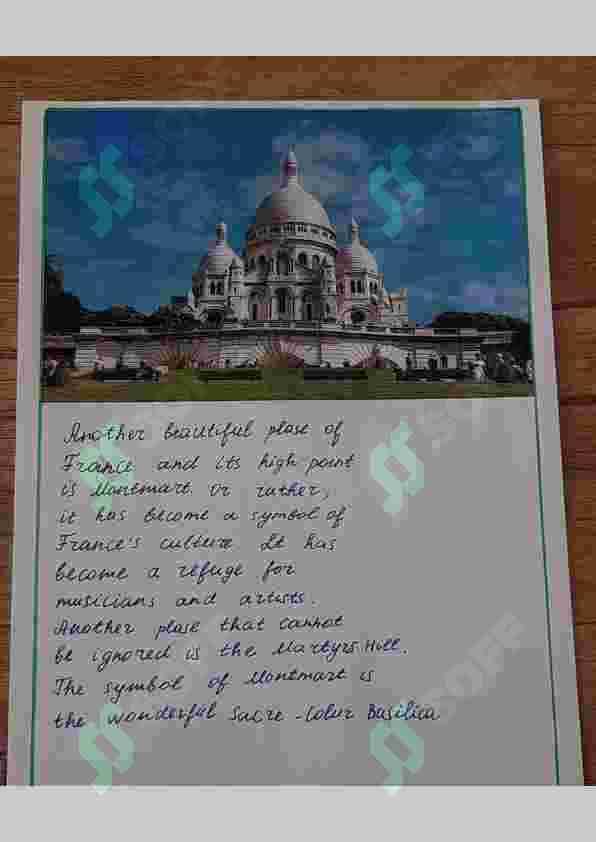 Another beautiful plase of
France and its high point
is Montmart. Or rather,
it has become a symbol of
France's culture. It has
become a refuge for
musicians and artists.
Another plase that cannot
be ignored is the Martyrs Hill.
The symbol of Montmart is
the wonderful Sacre-Colur Basilica
SOFF
SOFF